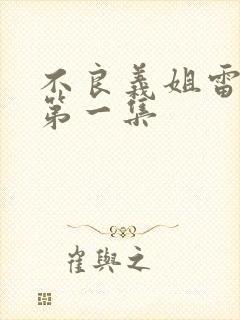 不良義姐雷
第一集
崔與之